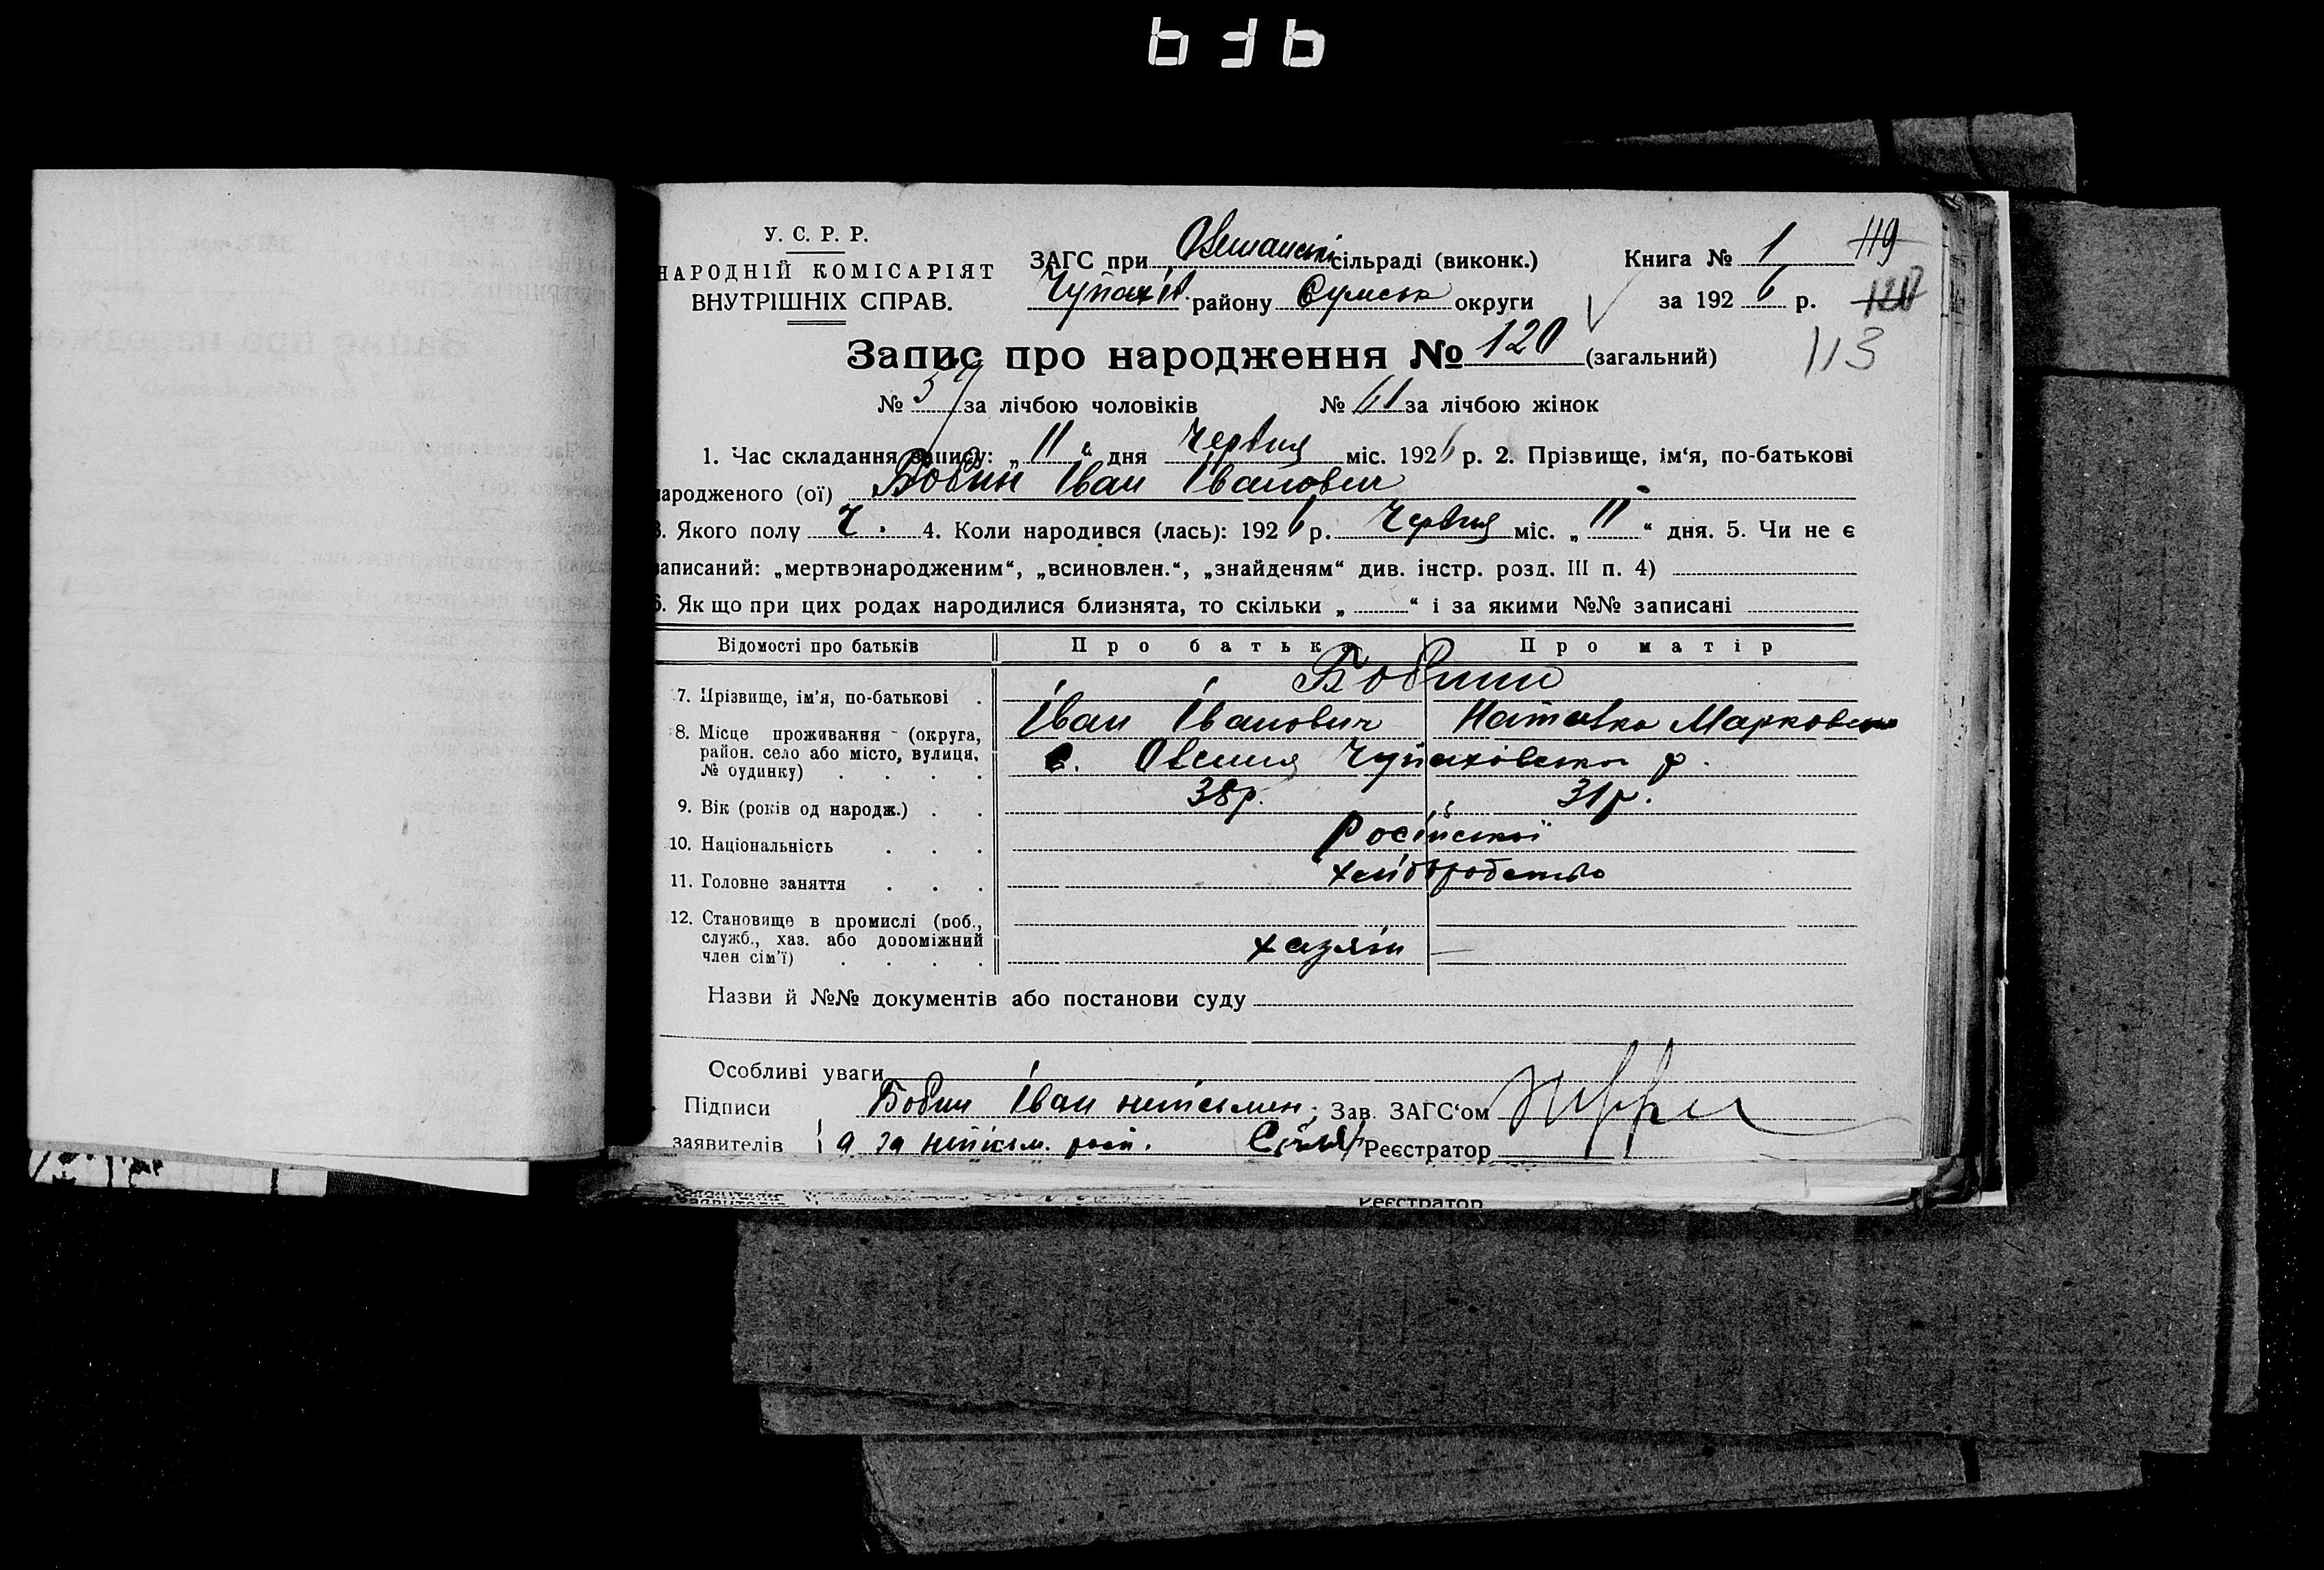 636
У. С. Р. Р.
НАРОДНІЙ КОМІСАРІЯТ
ВНУТРІШНІХ СПРАВ.
ЗАГС при сільраді (виконк.)
Чупахів. району Сумськ округи
Книга № 1
за 192 6 р.
119
120
113
Запис про народження № 120 (загальний)
№ 59 за лічбою чоловіків № 61 за лічбою жінок
1. Час складання запису: „ 11 “ дня Червня міс. 1926 р. 2. Прізвище, ім‘я, по-батькові
народженого (ої) Бовин Іван Іванович
3. Якого полу Ч. 4. Коли народився (лась): 1926 р. Червня міс. „ 11 “ дня. 5. Чи не є
записаний: „мертвонародженим“, „всиновлен.“, „знайденям“ див. інстр. розд. III п. 4)
6. Якщо при цих родах народилися близнята, то скільки „ “ і за якими №№ записані
Відомості про батьків Про батька Про матір
7. Прізвище, ім'я, по-батькові . Бовини
Іван Іванович Наталка Марковна
8. Місце проживання (округа, район. село або місто, вулиця, № будинку) . . . .
с. Овсяня Чупахівсько р.
9. Вік (років од народж.) . . 38р. 31р.
10. Національність . . . Російської
11. Головне заняття . . . хліборобство
12. Становище в промислі (роб., служб., хаз. або допоміжний член сім'ї) . . . . хазяїн —
Назви й №№ документів або постанови суду
Особливі уваги
Підписи Бовин Іван неписьмен. Зав. ЗАГС‘ом
заявителів а за неписьм. Реєстратор
Реєстратор